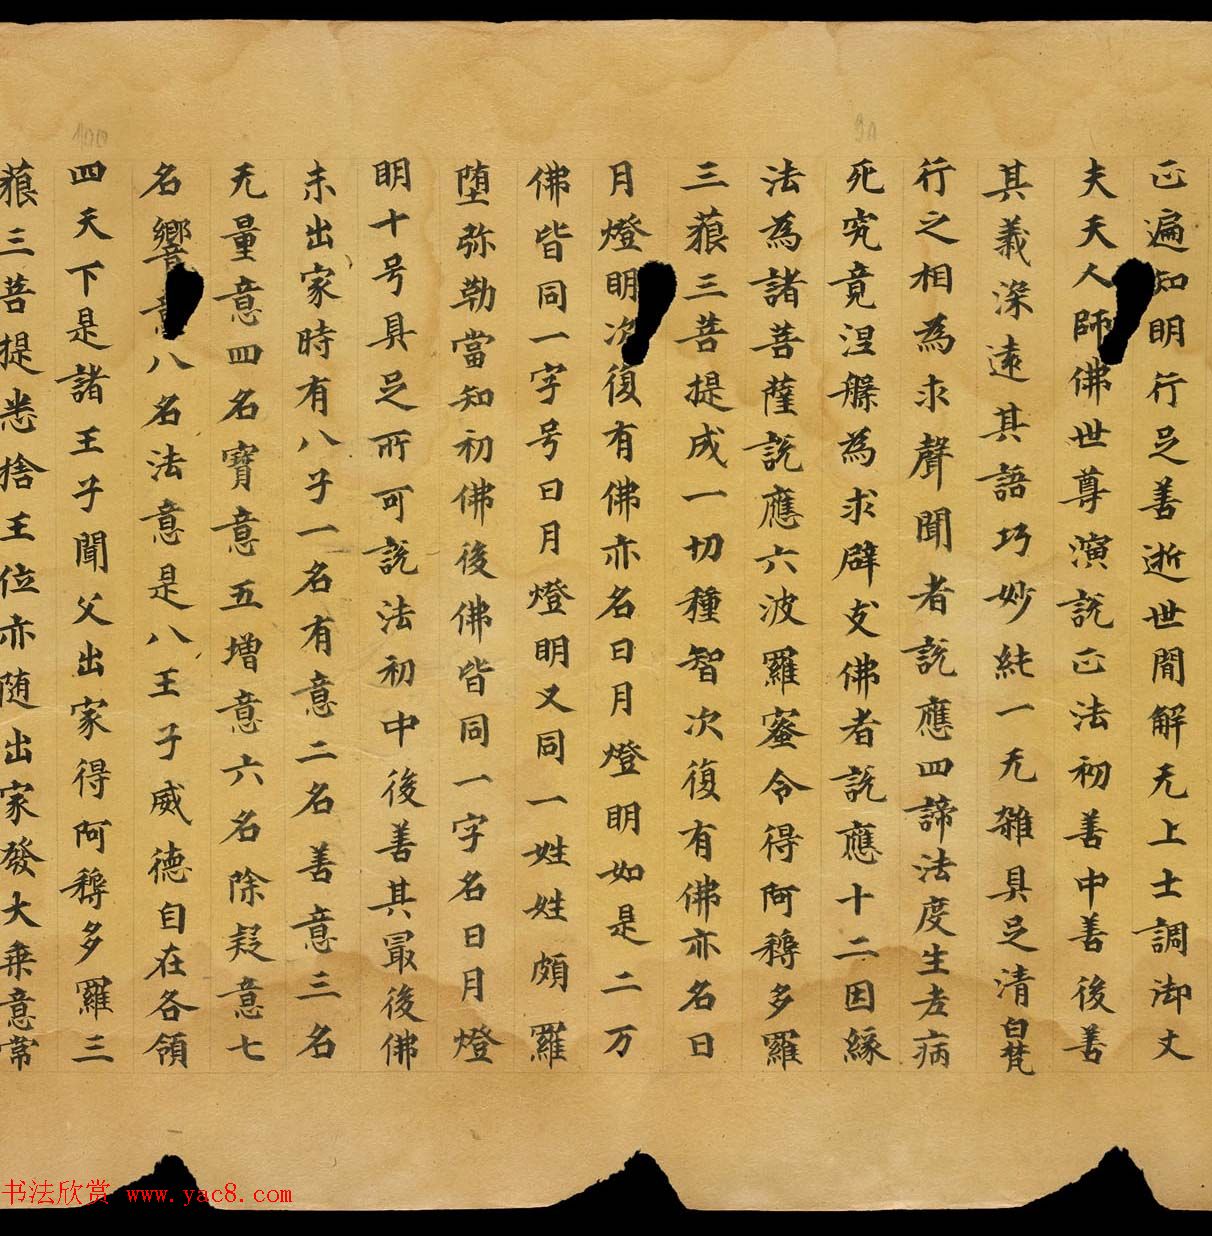 正遍知明行足善逝世間解无上士調御丈
夫天人師佛世尊演說正法初善中善後善
其義深遠其語巧妙純一无雜具足清白梵
行之相為求聲聞者說應四諦法度生老病
死究竟涅槃為求辟支佛者說應十二因緣
法為諸菩薩說應六波羅蜜令得阿耨多羅
三藐三菩提成一切種智次復有佛亦名日
月燈明次復有佛亦名日月燈明如是二万
佛皆同一字号日月燈明又同一姓姓頗羅
堕弥勒當知初佛後佛皆同一字名日月燈
明十号具足所可說法初中後善其最後佛
未出家時有八子一名有意二名善意三名
无量意四名寶意五增意六名除疑意七
名響意八名法意是八王子威德自在各領
四天下是諸王子聞父出家得阿耨多羅三
藐三菩提悉捨王位亦随出家發大乗意常
书法欣赏 www.yac8.com